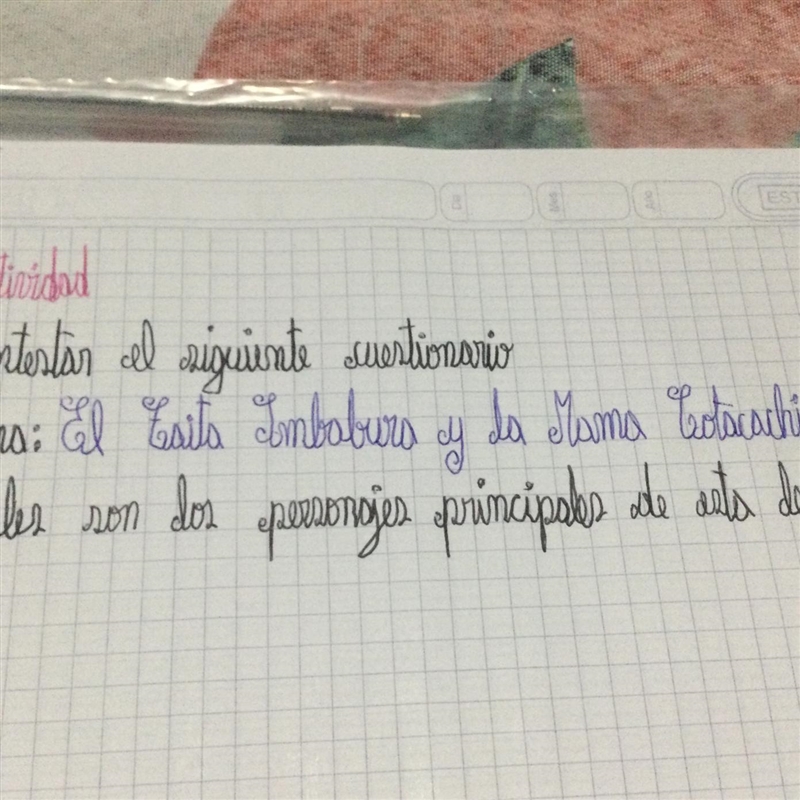 Día Mes Año EST
tividad
ntestar el siguiente cuestionario
ma: El Taita Imbabura y la Mama Cotacachi
les son los personajes principales de esta le